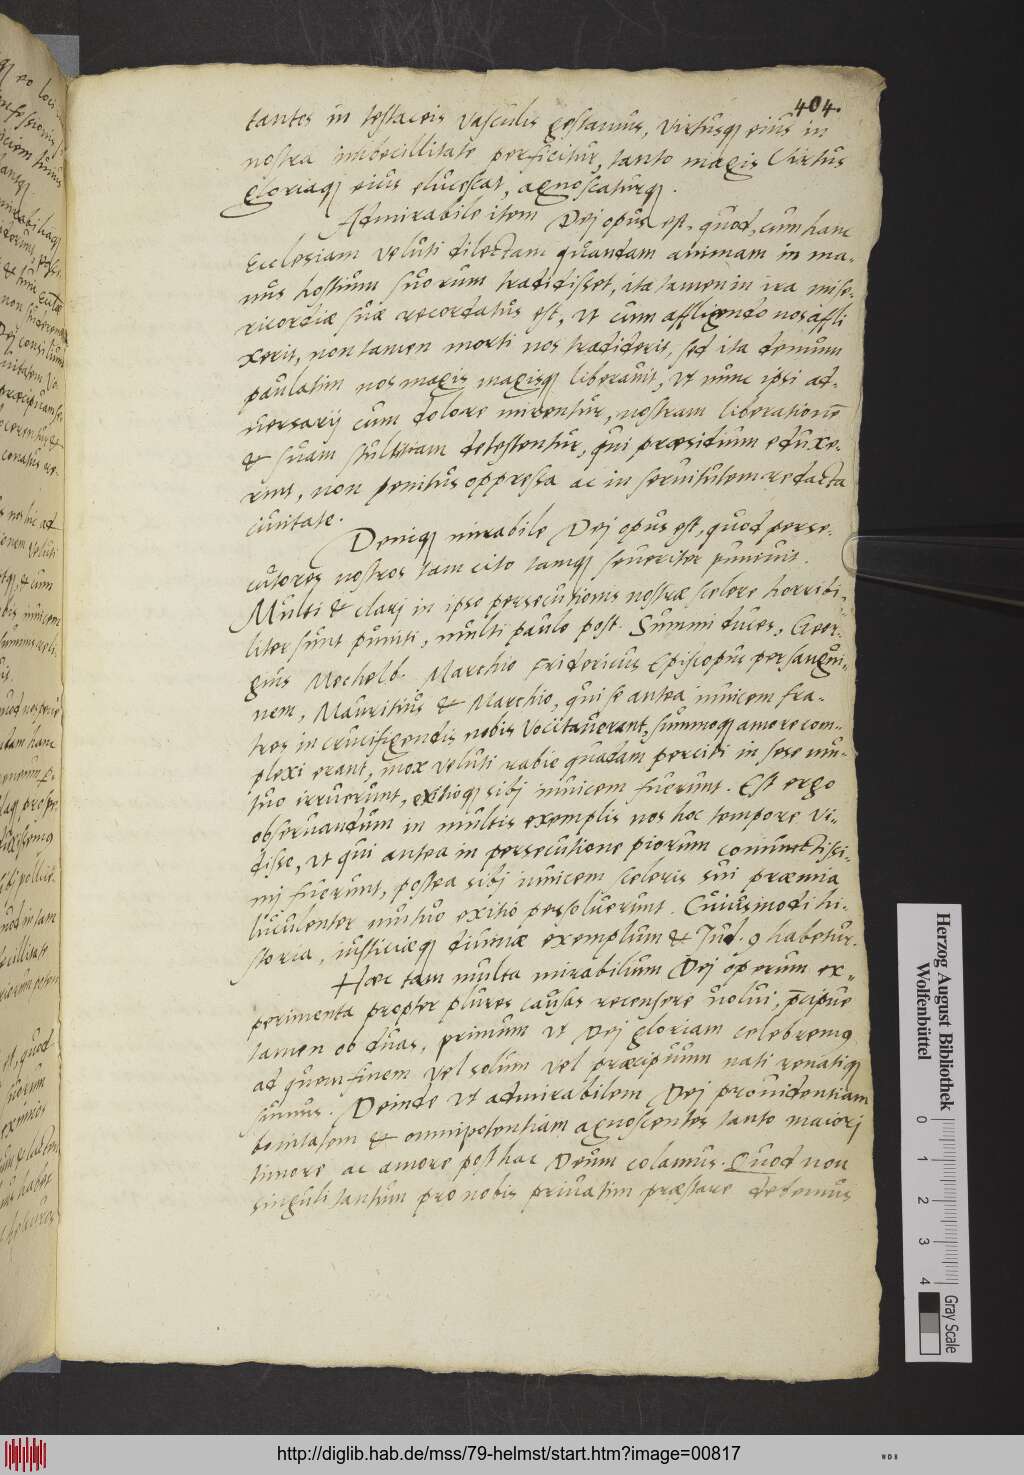 404.
tantes in testaceis vasculis gestamus, virtusq eius in
nostra imbecillitate perficitur, tanto magis Virtus
gloriaq eius elucescat, agnoscaturq.
Admirabile item Dej opus est, quod, cum hanc
Ecclesiam veluti dilectam quandam animam in ma-
nus hostium suorum tradidisset, ita tamen in ira mise-
ricordiæ suæ recordatus est, ut cum affligendo nos affli
xerit, non tamen morti nos tradiderit, sed ita demum
paulatim nos magis magisq liberauit, ut nunc ipsi ad-
uersarij cum dolore mirentur, nostram liberationē
& suam stultitiam detestentur, qui præsidium eduxe-
rint, non penitus oppressa ac in seruitutem redacta
ciuitate.
Deniq mirabile Dej opus est, quod perse-
cutores nostros tam cito tamq seueriter puniuit.
Multi & clarj in ipso persecutionis nostræ scelere horribi-
liter sunt puniti, multi paulo post. Summi duces, Geor-
gius Mechelb. Marchio Fridericus Episcopus per sangui-
nem, Mauritius & Marchio, qui se antea inuicem fra-
tres in crucifigendis nobis vocitauerant, summoq amore com-
plexi erant, mox veluti rabie quadam perciti in sese mu-
tuo irruerunt, exitioq sibj inuicem fuerunt. Est ergo
obseruandum in multis exemplis nos hoc tempore vi-
disse, ut qui antea in persecutione piorum coniunctissi-
mj fuerunt, postea sibj inuicem sceleris sui præmia
luculenter mutuo exitio persoluerunt. Cuiusmodi hi-
storia, iusticiæq diuinæ exemplum & Jud. 9 habetur.
Hæc tam multa mirabilium Dej operum ex-
perimenta propter plures causas recensere uolui, p̄cipue
tamen ob duas, primum ut Dej gloriam celebremus
ad quem finem vel solum vel præcipuum nati renatiq
sumus. Deinde ut admirabilem Dej prouidentiam
bonitatem & omnipotentiam agnoscentes tanto maiorj
timore ac amore posthac Deum colamus. Quod non
singuli tantum pro nobis priuatim præstare debemus
Herzog August Bibliothek
Wolfenbüttel
0 1 2 3 4
Gray Scale
http://diglib.hab.de/mss/79-helmst/start.htm?image=00817